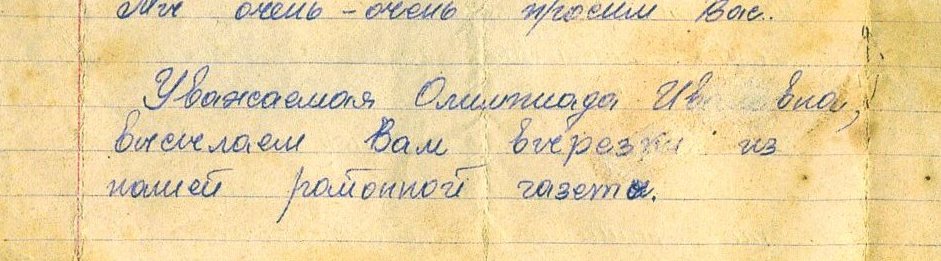 Мы очень-очень просим Вас.
Уважаемая Олимпиада Ивановна,
высылаем Вам вырезки из
нашей районной газеты.